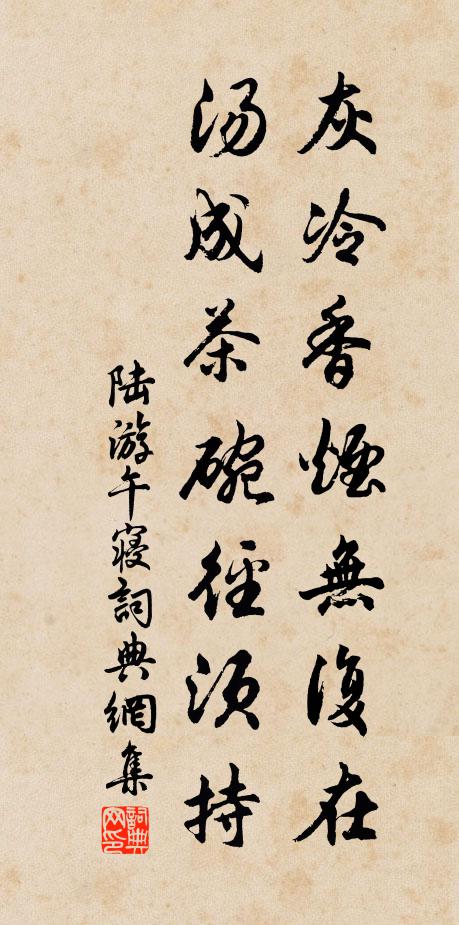 灰冷香煙無復在
汤成茶碗徑须持
陆游午寢詞典網集
詞典网印